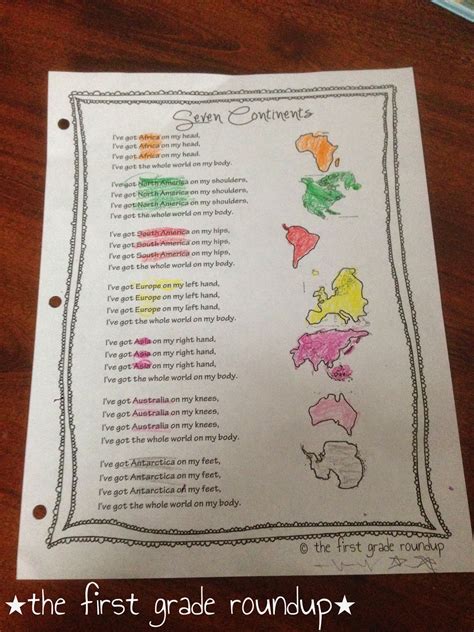 Seven Continents
I've got Africa on my head,
I've got Africa on my head,
I've got Africa on my head.
I've got the whole world on my body.
I've got North America on my shoulders,
I've got North America on my shoulders,
I've got North America on my shoulders,
I've got the whole world on my body.
I've got South America on my hips,
I've got South America on my hips,
I've got South America on my hips,
I've got the whole world on my body.
I've got Europe on my left hand,
I've got Europe on my left hand,
I've got Europe on my left hand,
I've got the whole world on my body.
I've got Asia on my right hand,
I've got Asia on my right hand,
I've got Asia on my right hand,
I've got the whole world on my body.
I've got Australia on my knees,
I've got Australia on my knees,
I've got Australia on my knees,
I've got the whole world on my body.
I've got Antarctica on my feet,
I've got Antarctica on my feet,
I've got Antarctica on my feet,
I've got the whole world on my body.
© the first grade roundup
★the first grade roundup★